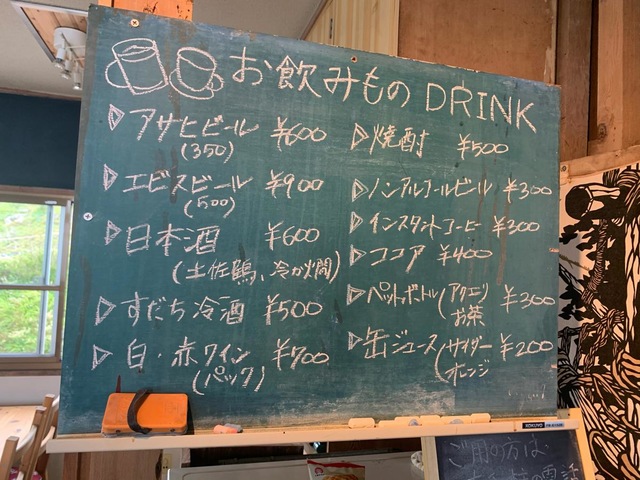 お飲みもの DRINK
▷アサヒビール ¥600
(350)
▷エビスビール ¥900
(500)
▷日本酒 ¥600
(土佐鶴、冷か燗)
▷すだち冷酒 ¥500
▷白・赤ワイン ¥700
(パック)
▷焼酎 ¥500
▷ノンアルコールビール ¥300
▷インスタントコーヒー ¥300
▷ココア ¥400
▷ペットボトル(アクエリ ¥300
お茶
▷缶ジュース(サイダー ¥200
オレンジ
KOKUYO
ご用の方は